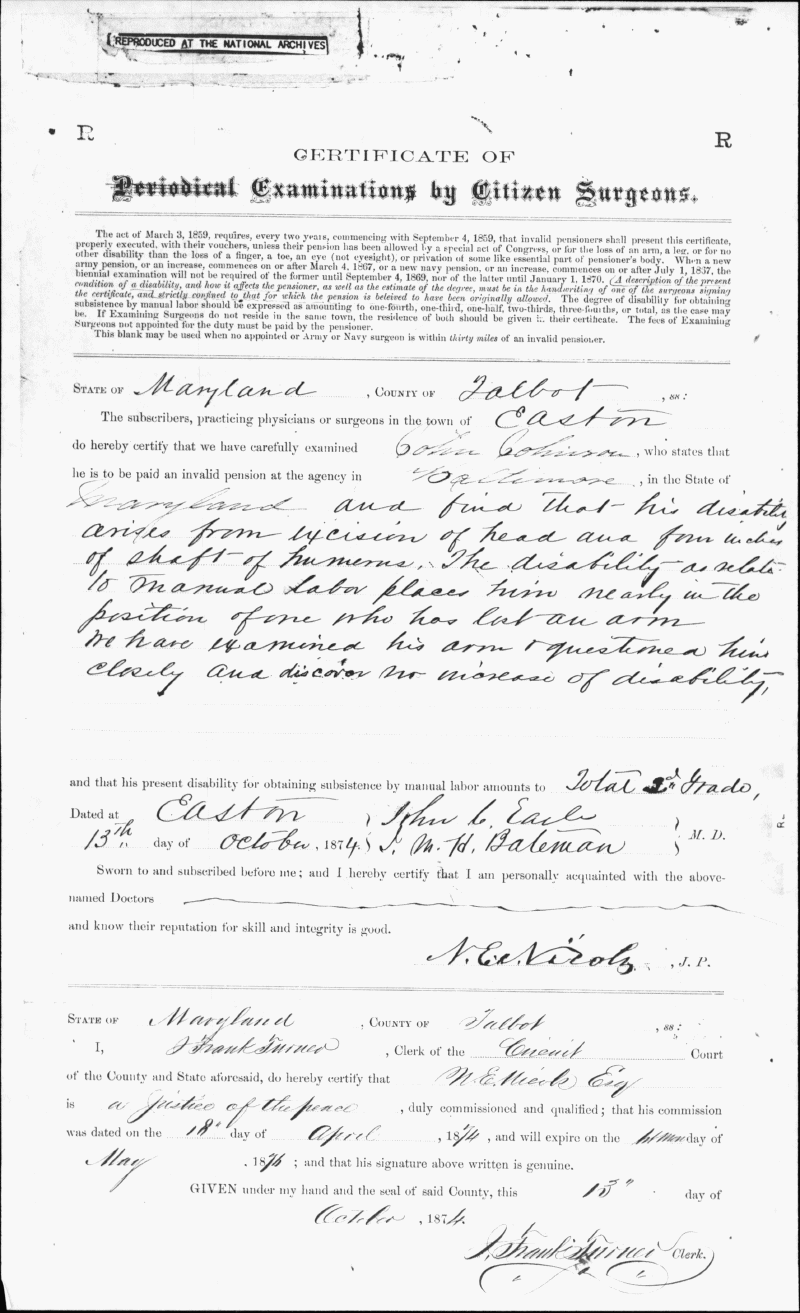 REPRODUCED AT THE NATIONAL ARCHIVES
R
R
CERTIFICATE OF
Periodical Examinations by Citizen Surgeons.
The act of March 3, 1859, requires, every two years, commencing with September 4, 1859, that invalid pensioners shall present this certificate,
properly executed, with their vouchers, unless their pension has been allowed by a special act of Congress, or for the loss of an arm, a leg, or for no
other disability than the loss of a finger, a toe, an eye (not eyesight), or privation of some like essential part of pensioner's body. When a new
army pension, or an increase, commences on or after March 4, 1867, or a new navy pension, or an increase, commences on or after July 1, 1837, the
biennial examination will not be required of the former until September 4, 1869, nor of the latter until January 1, 1870. (A description of the present
condition of a disability, and how it affects the pensioner, as well as the estimate of the degree, must be in the handwriting of one of the surgeons signing
the certificate, and strictly confined to that for which the pension is beleived to have been originally allowed. The degree of disability for obtaining
subsistence by manual labor should be expressed as amounting to one-fourth, one-third, one-half, two-thirds, three-fourths, or total, as the case may
be. If Examining Surgeons do not reside in the same town, the residence of both should be given in their certificate. The fees of Examining
Surgeons not appointed for the duty must be paid by the pensioner.
This blank may be used when no appointed or Army or Navy surgeon is within thirty miles of an invalid pensioner.
STATE OF Maryland, COUNTY OF Talbot, ss:
The subscribers, practicing physicians or surgeons in the town of Easton
do hereby certify that we have carefully examined John Johnson, who states that
he is to be paid an invalid pension at the agency in Baltimore, in the State of
Maryland and find that his disability
arises from excision of head and four inches
of shaft of humerus. The disability as relate
to manual labor places him nearly in the
position of one who has lost an arm
We have examined his arm & questioned him
closely and discover no increase of disability,
and that his present disability for obtaining subsistence by manual labor amounts to Total 2d Grade,
Dated at Easton John C. Earle
13th day of October, 1874. M. H. Bateman M. D.
Sworn to and subscribed before me; and I hereby certify that I am personally acquainted with the above-
named Doctors
and know their reputation for skill and integrity is good.
N. E. Nicols, J. P.
STATE OF Maryland, COUNTY OF Talbot, ss:
I, J Frank Turner, Clerk of the Circuit Court
of the County and State aforesaid, do hereby certify that N. E. Nicols Esq
is a Justice of the peace, duly commissioned and qualified; that his commission
was dated on the 18" day of April, 1874, and will expire on the 1st Mon day of
May, 1876; and that his signature above written is genuine.
GIVEN under my hand and the seal of said County, this 13" day of
October, 1874.
J. Frank Turner Clerk.